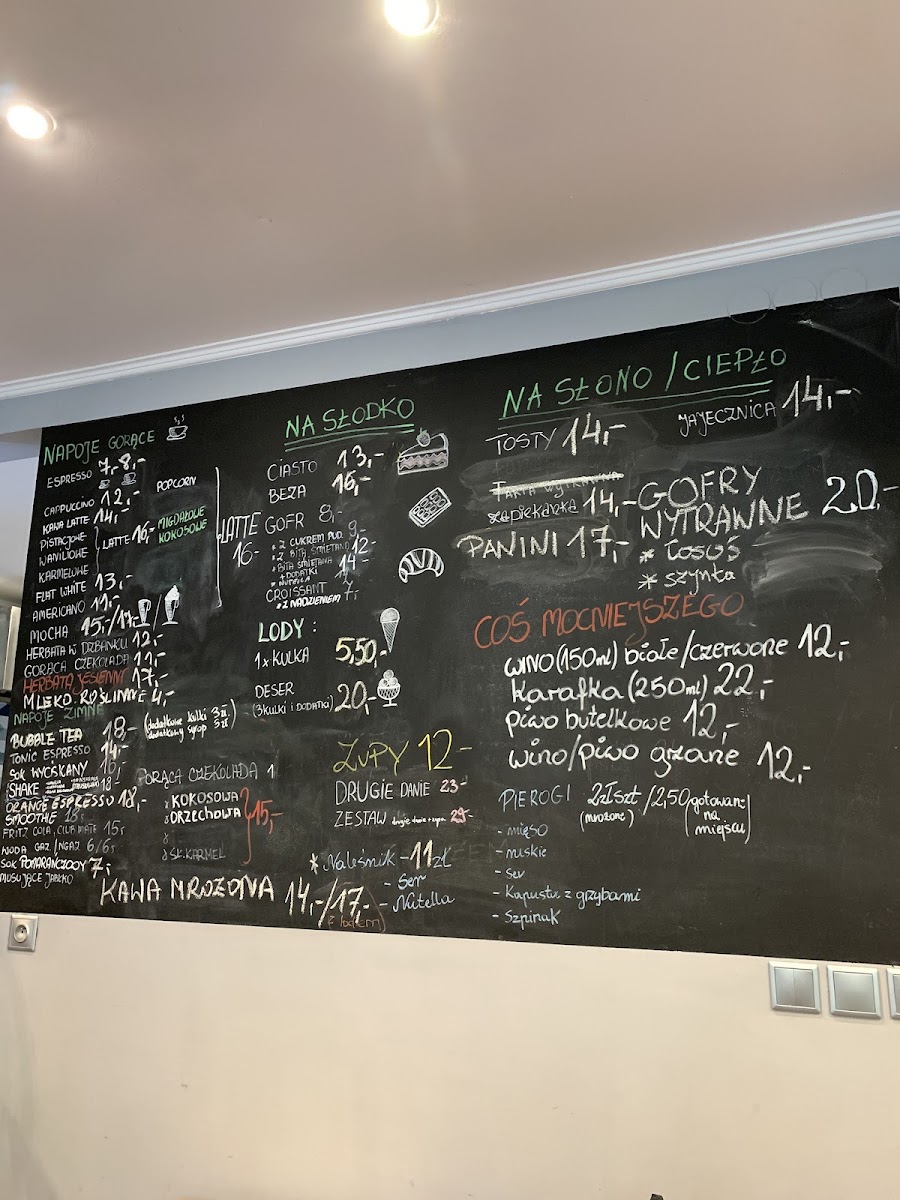 NAPOJE GORĄCE
ESPRESSO 7,- 8,-
CAPPUCCINO 12,-
KAWA LATTE 14,-
PISTACJOWE
WANILIOWE
KARMELOWE
LATTE 16,-
POPCORN
MIGDAŁOWE
KOKOSOWE
LATTE
16-
FLAT WHITE 13,-
AMERICANO 11,-
MOCHA 15,-/17,-
HERBATA W DZBANKU 12,-
GORĄCA CZEKOLADA
HERBATA JESIENNA 17,-
MLEKO ROŚLINNE 4,-
NAPOJE ZIMNE
BUBBLE TEA 18,- (dodatkowe kulki 3zł
dodatkowy syrop 3zł
TONIC ESPRESSO 14,-
SOK WYCISKANY
SHAKE 18,-
ORANGE ESPRESSO 18,-
SMOOTHIE 18,-
FRITZ COLA, CLUB MATE 15,-
WODA GAZ/NGAZ 6/6,-
SOK POMARAŃCZOWY 7,-
MUSUJĄCE JABŁKO
KAWA MROŻONA 14,-/17,-
(z lodem)
NA SŁODKO
CIASTO 13,-
BEZA 16,-
GOFR 8,-
* Z CUKREM PUD. 9,-
* Z BITĄ ŚMIETANĄ 12-
* BITA ŚMIETANA
+ DODATKI 14-
* NUTELLA
CROISSANT 7
* Z NADZIENIEM 7,-
LODY :
1x KULKA 5,50,-
DESER
(3 KULKI I DODATKI) 20,-
GORĄCA CZEKOLADA
KOKOSOWA
ORZECHOWA
15,-
SŁ. KARMEL
ZUPY 12-
DRUGIE DANIE 23-
ZESTAW
* Naleśnik - 11zł
- Ser
- Nutella
NA SŁONO / CIEPŁO
TOSTY 14,-
JAJECZNICA 14,-
zapiekanka 14,-
PANINI 17,-
GOFRY
WYTRAWNE 20,-
* łosoś
* szynka
COŚ MOCNIEJSZEGO
wino (150ml) białe/czerwone 12,-
karafka (250ml) 22,-
piwo butelkowe 12,-
wino/piwo grzane 12,-
PIEROGI 2zł szt /2,50
(mrożone)
(gotowane
na
miejscu)
- mięso
- ruskie
- ser
- Kapusta z grzybami
- Szpinak